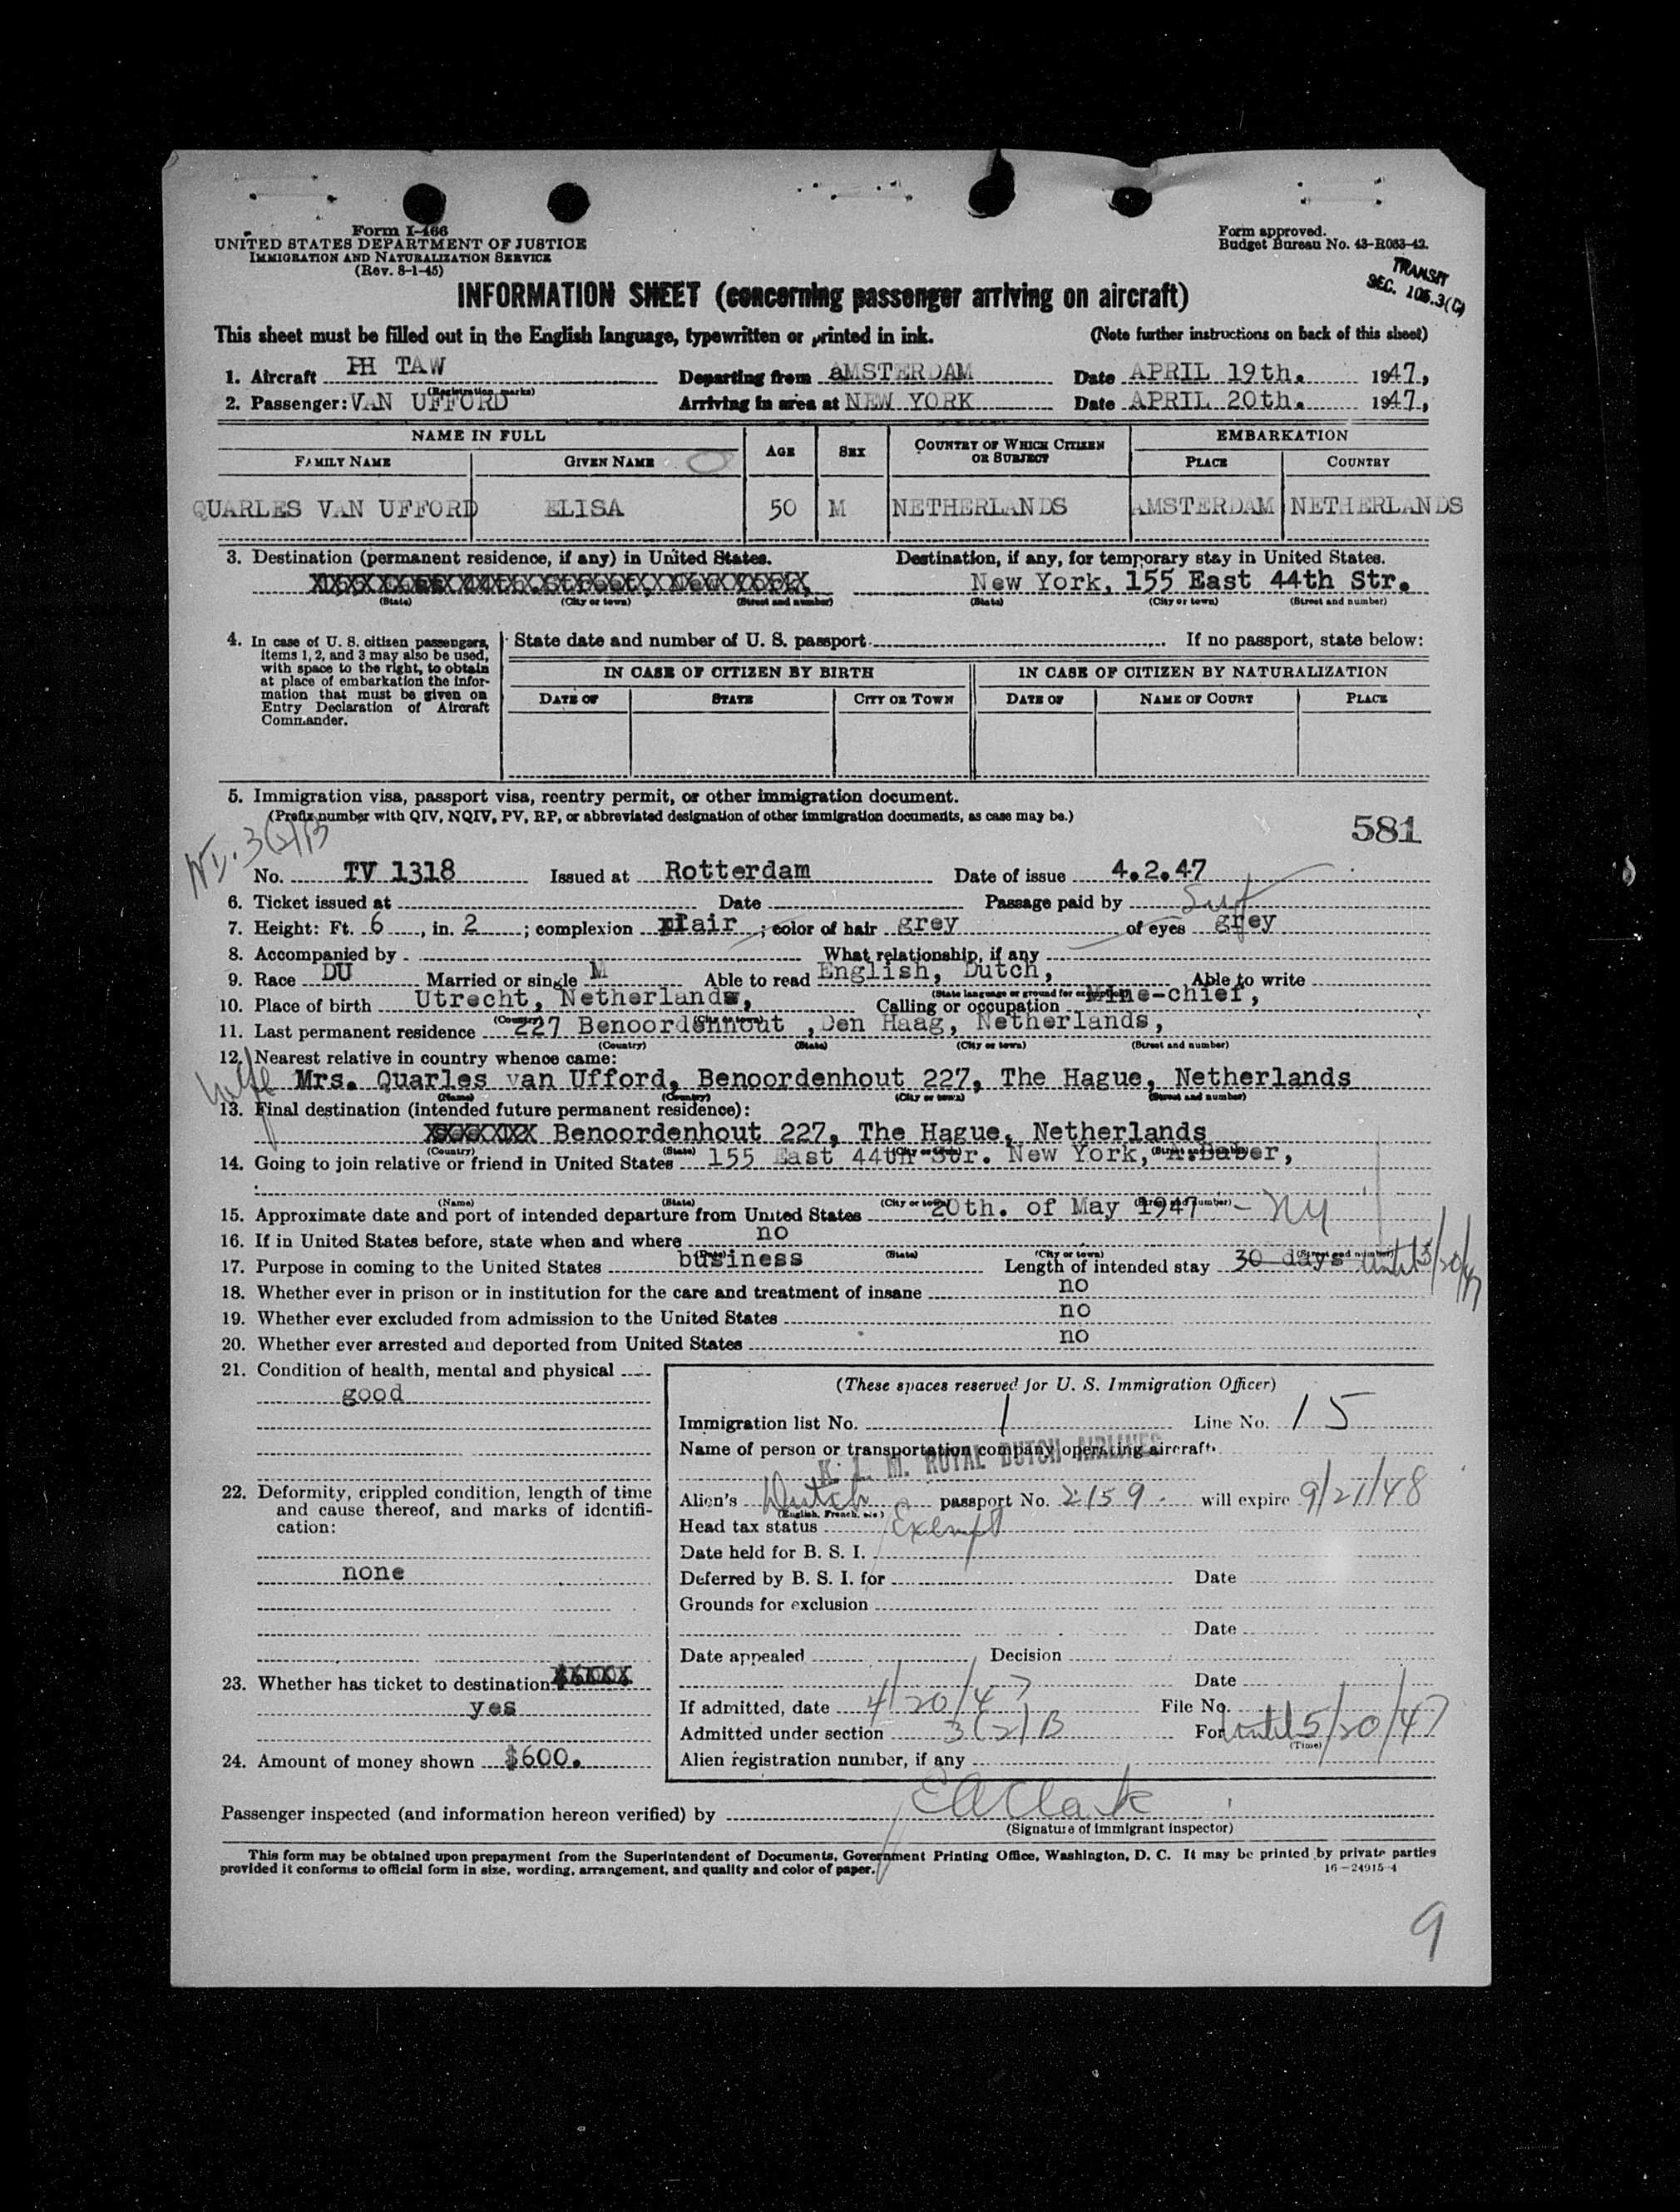 Form I-466
UNITED STATES DEPARTMENT OF JUSTICE
IMMIGRATION AND NATURALIZATION SERVICE
(Rev. 8-1-45)
Form approved.
Budget Bureau No. 43-R083-42.
TRANSIT
SEC. 105.3(C)
INFORMATION SHEET (concerning passenger arriving on aircraft)
This sheet must be filled out in the English language, typewritten or printed in ink. (Note further instructions on back of this sheet)
1. Aircraft PH TAW Departing from aMSTERDAM Date APRIL 19th. 1947,
(Registration marks)
2. Passenger: VAN UFFORD Arriving in area at NEW YORK Date APRIL 20th. 1947,
NAME IN FULL AGE SEX COUNTRY OF WHICH CITIZEN OR SUBJECT EMBARKATION
FAMILY NAME GIVEN NAME PLACE COUNTRY
QUARLES VAN UFFORD ELISA 50 M NETHERLANDS AMSTERDAM NETHERLANDS
3. Destination (permanent residence, if any) in United States. Destination, if any, for temporary stay in United States.
New York, 155 East 44th Str.
(State) (City or town) (Street and number) (State) (City or town) (Street and number)
4. In case of U. S. citizen passengers, items 1, 2, and 3 may also be used, with space to the right, to obtain at place of embarkation the information that must be given on Entry Declaration of Aircraft Commander.
State date and number of U. S. passport If no passport, state below:
IN CASE OF CITIZEN BY BIRTH IN CASE OF CITIZEN BY NATURALIZATION
DATE OF STATE CITY OR TOWN DATE OF NAME OF COURT PLACE
5. Immigration visa, passport visa, reentry permit, or other immigration document.
(Prefix number with QIV, NQIV, PV, RP, or abbreviated designation of other immigration documents, as case may be.)
581
3(2)B
No. TV 1318 Issued at Rotterdam Date of issue 4.2.47
6. Ticket issued at Date Passage paid by Self
7. Height: Ft. 6, in. 2; complexion fair; color of hair grey of eyes grey
8. Accompanied by What relationship, if any
9. Race DU Married or single M Able to read English, Dutch, Able to write
(State language or ground for exemption)
10. Place of birth Utrecht, Netherlands, Calling or occupation Mine-chief,
(Country) (City or town)
11. Last permanent residence 227 Benoordenhout, Den Haag, Netherlands,
(Country) (State) (City or town) (Street and number)
12. Nearest relative in country whence came:
wife Mrs. Quarles van Ufford, Benoordenhout 227, The Hague, Netherlands
(Name) (Country) (City or town) (Street and number)
13. Final destination (intended future permanent residence):
Benoordenhout 227, The Hague, Netherlands
(Country) (State) (City or town) (Street and number)
14. Going to join relative or friend in United States 155 East 44th Str. New York, A.Baber,
(Name) (State) (City or town) (Street and number)
15. Approximate date and port of intended departure from United States 20th. of May 1947 - NY
16. If in United States before, state when and where no
(Date) (State) (City or town) (Street and number)
17. Purpose in coming to the United States business Length of intended stay 30 days until 5/20/47
18. Whether ever in prison or in institution for the care and treatment of insane no
19. Whether ever excluded from admission to the United States no
20. Whether ever arrested and deported from United States no
21. Condition of health, mental and physical
good
22. Deformity, crippled condition, length of time and cause thereof, and marks of identification:
none
23. Whether has ticket to destination
yes
24. Amount of money shown $600.
(These spaces reserved for U. S. Immigration Officer)
Immigration list No. 1 Line No. 15
Name of person or transportation company operating aircraft
K. L. M. ROYAL DUTCH AIRLINES
Alien's Dutch passport No. 2159 will expire 9/21/48
(English, French, etc.)
Head tax status Exempt
Date held for B. S. I.
Deferred by B. S. I. for Date
Grounds for exclusion
Date
Date appealed Decision
Date
If admitted, date 4/20/47 File No.
Admitted under section 3(2)B For until 5/20/47
(Time)
Alien registration number, if any
Passenger inspected (and information hereon verified) by EA Clark
(Signature of immigrant inspector)
This form may be obtained upon prepayment from the Superintendent of Documents, Government Printing Office, Washington, D. C. It may be printed by private parties
provided it conforms to official form in size, wording, arrangement, and quality and color of paper. 16-24915-4
9